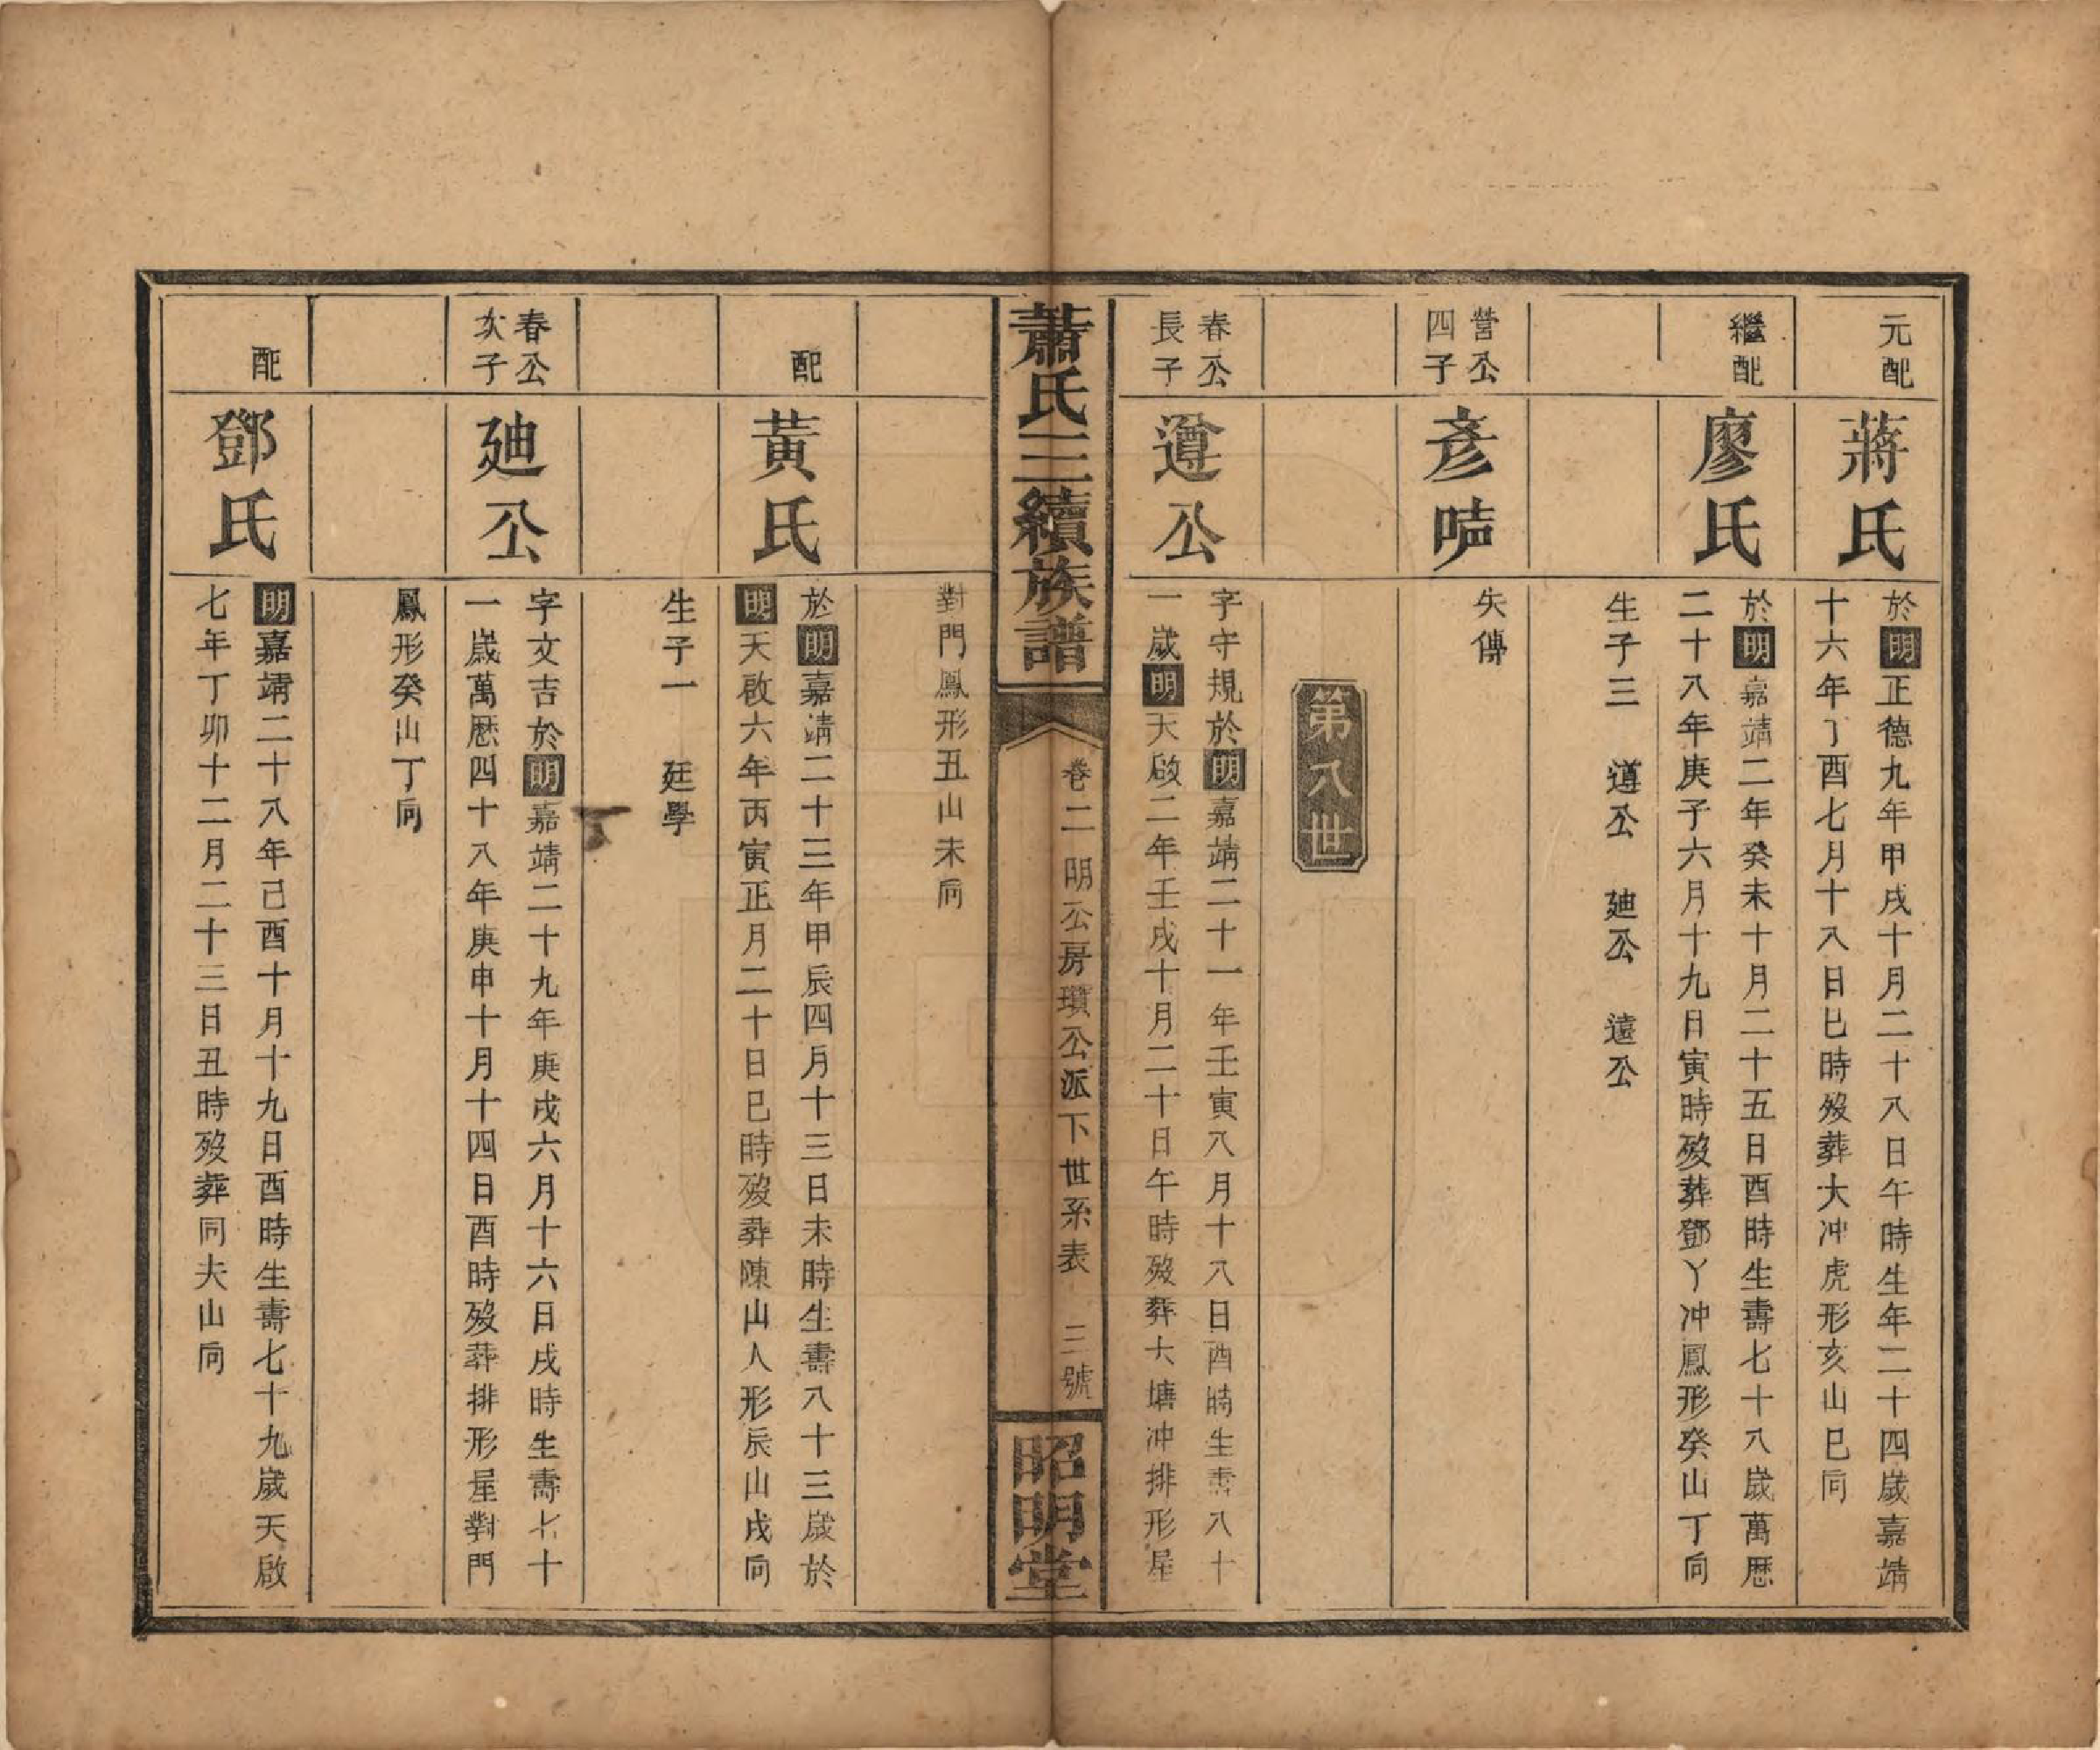 元配
蔣氏
於明正德九年甲戌十月二十八日午時生年二十四歲嘉靖
十六年丁酉七月十八日巳時歿葬大冲虎形亥山巳向
繼配
廖氏
於明嘉靖二年癸未十月二十五日酉時生壽七十八歲萬歷
二十八年庚子六月十九日寅時歿葬鄧丫冲鳳形癸山丁向
生子三 遵公 廸公 遠公
營公
四子
彥
失傳
第八世
春公
長子
遵公
字守規於明嘉靖二十一年壬寅八月十八日酉時生壽八十
一歲明天啟二年壬戌十月二十日午時歿葬大塘冲排形屋
蕭氏三續族譜
卷二 明公房瓚公派下世系表 三號
昭明堂
對門鳳形丑山未向
配
黃氏
於明嘉靖二十三年甲辰四月十三日未時生壽八十三歲於
明天啟六年丙寅正月二十日巳時歿葬陳山人形辰山戌向
生子一 廷學
春公
次子
廸公
字文吉於明嘉靖二十九年庚戌六月十六日戌時生壽七十
一歲萬歷四十八年庚申十月十四日酉時歿葬排形屋對門
鳳形癸山丁向
配
鄧氏
明嘉靖二十八年己酉十月十九日酉時生壽七十九歲天啟
七年丁卯十二月二十三日丑時歿葬同夫山向